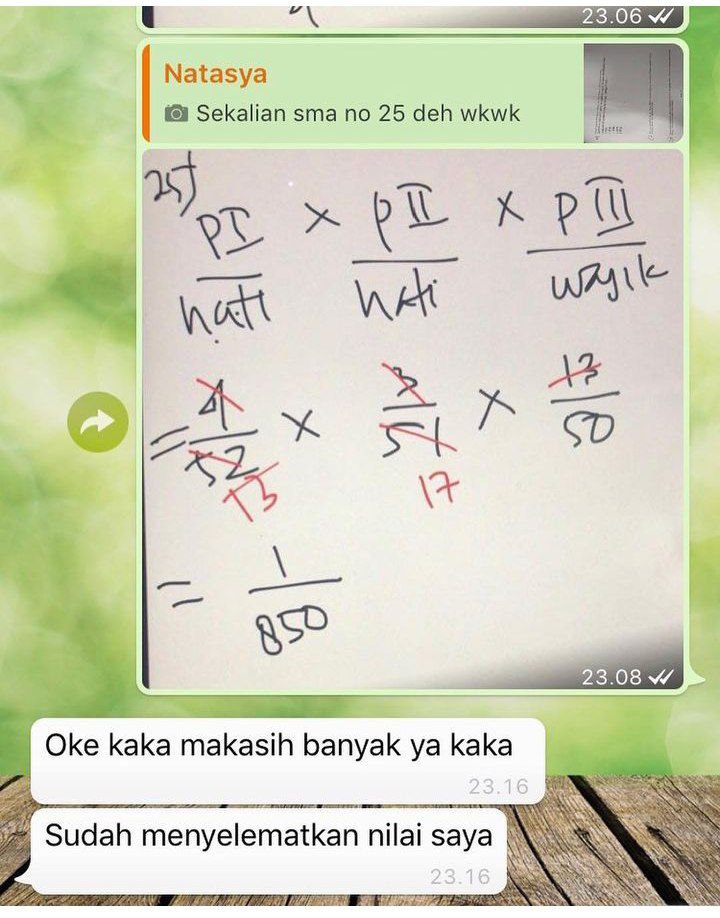 23.06
Natasya
Sekalian sma no 25 deh wkwk
25)
PI × PII × PIII
hati hati wajik
= 4 × 3 × 13
52 51 50
13 17
= 1
850
23.08
Oke kaka makasih banyak ya kaka
23.16
Sudah menyelematkan nilai saya
23.16